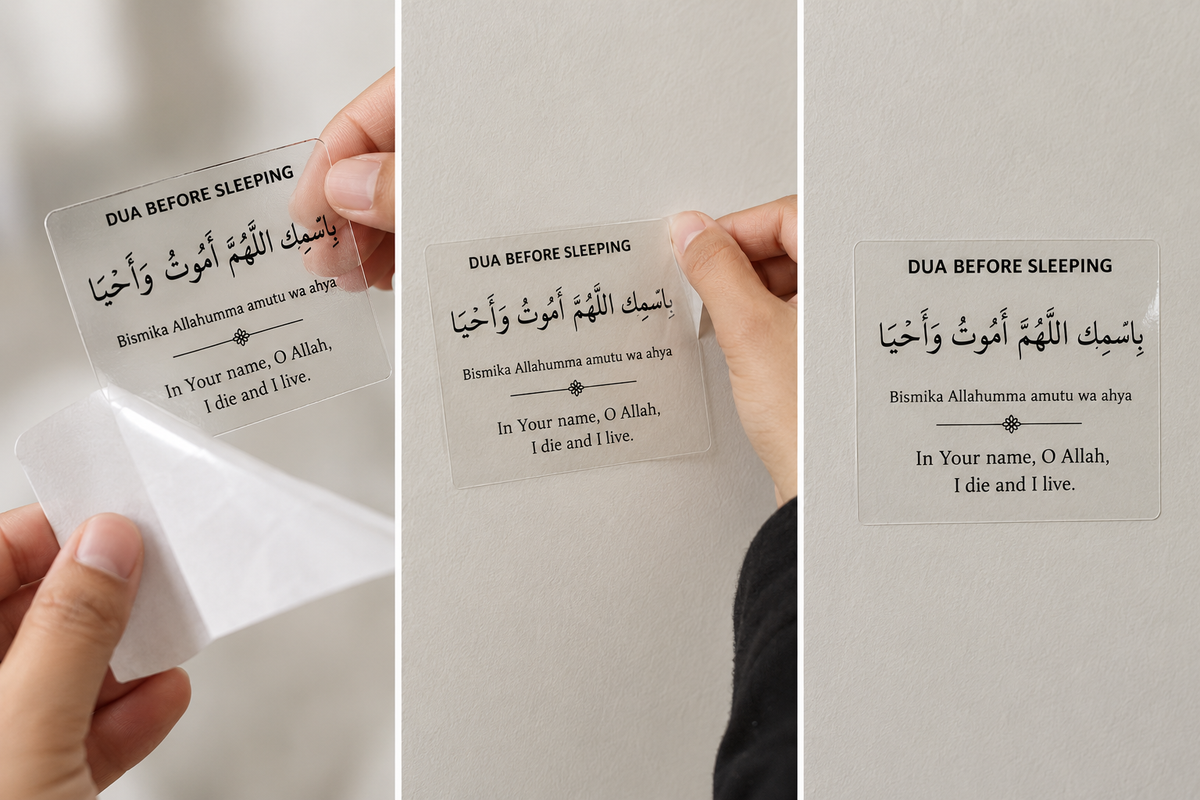 DUA BEFORE SLEEPING
بِاسّمِك اللَّهُمَّ أَمُوتُ وَأَحْيَا
Bismika Allahumma amutu wa ahya
In Your name, O Allah,
I die and I live.
DUA BEFORE SLEEPING
بِاسّمِك اللَّهُمَّ أَمُوتُ وَأَحْيَا
Bismika Allahumma amutu wa ahya
In Your name, O Allah,
I die and I live.
DUA BEFORE SLEEPING
بِاسّمِك اللَّهُمَّ أَمُوتُ وَأَحْيَا
Bismika Allahumma amutu wa ahya
In Your name, O Allah,
I die and I live.